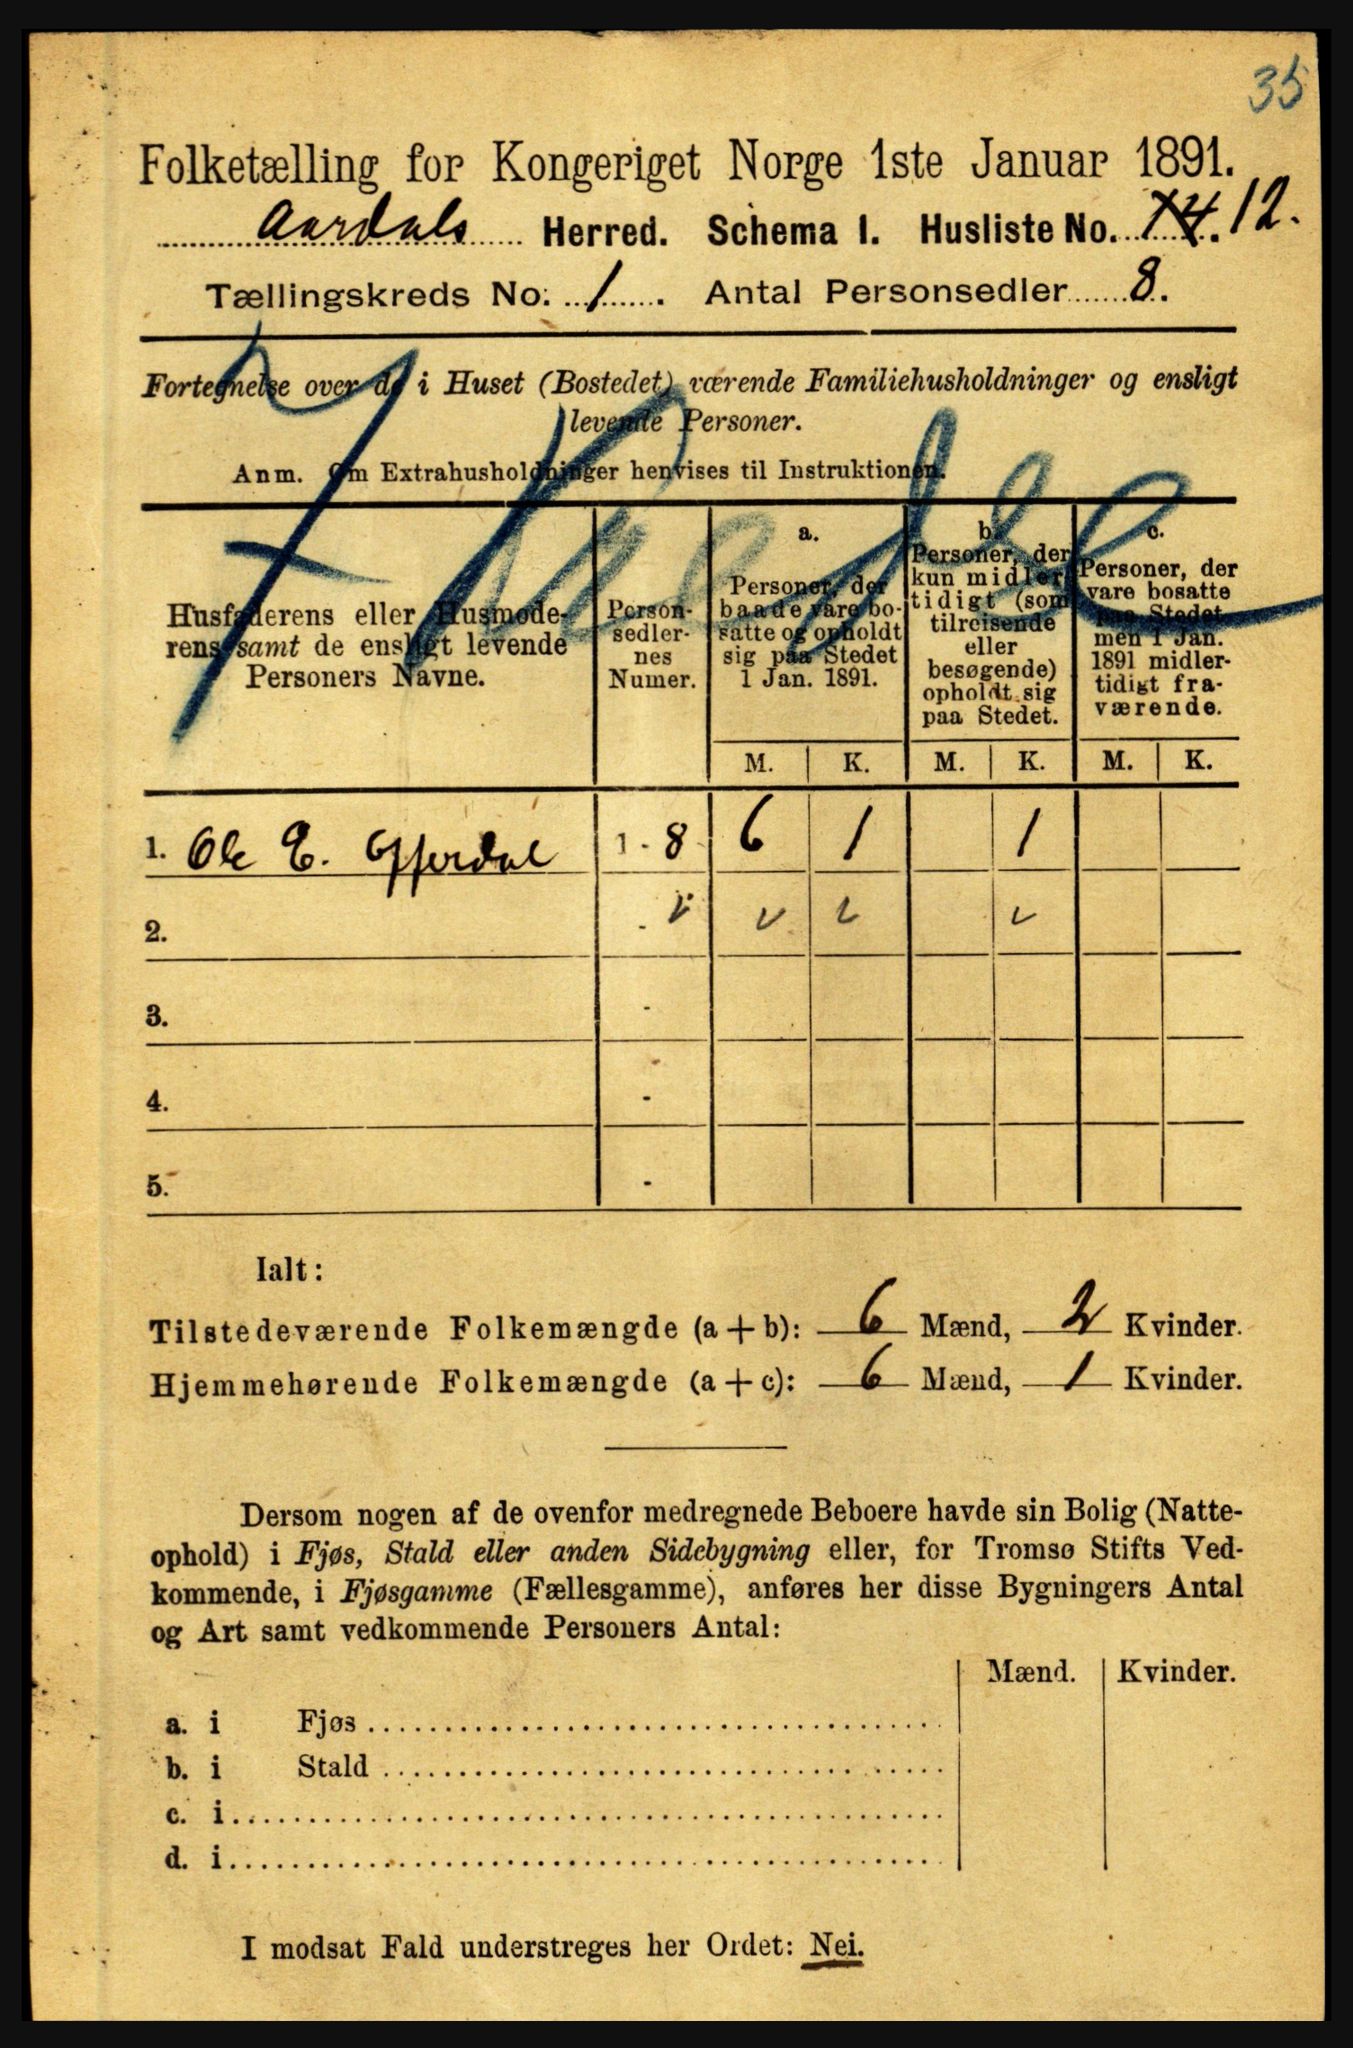 35
Folketælling for Kongeriget Norge 1ste Januar 1891.
Aardals Herred. Schema 1. Husliste No. 14. 12.
Tællingskreds No. 1. Antal Personsedler 8.
Fortegnelse over de i Huset (Bostedet) værende Familiehusholdninger og ensligt
levende Personer.
Anm. Om Extrahusholdninger henvises til Instruktionen.
Husfaderens eller Husmode-
rens samt de ensligt levende
Personers Navne.
Person-
sedler-
nes
Numer.
a.
Personer, der
baade vare bo-
satte og opholdt
sig paa Stedet
1 Jan. 1891.
b.
Personer, der
kun midler-
tidigt (som
tilreisende
eller
besøgende)
opholdt sig
paa Stedet.
c.
Personer, der
vare bosatte
paa Stedet
men 1 Jan.
1891 midler-
tidigt fra-
værende.
M. K. M. K. M. K.
1. Ole E. 1 - 8 6 1 1
2. -
3. -
4. -
5. -
Ialt:
Tilstedeværende Folkemængde (a + b): 6 Mænd, 2 Kvinder.
Hjemmehørende Folkemængde (a + c): 6 Mænd, 1 Kvinder.
Dersom nogen af de ovenfor medregnede Beboere havde sin Bolig (Natte-
ophold) i Fjøs, Stald eller anden Sidebygning eller, for Tromsø Stifts Ved-
kommende, i Fjøsgamme (Fællesgamme), anføres her disse Bygningers Antal
og Art samt vedkommende Personers Antal:
Mænd. Kvinder.
a. i Fjøs
b. i Stald
c. i
d. i
I modsat Fald understreges her Ordet: Nei.